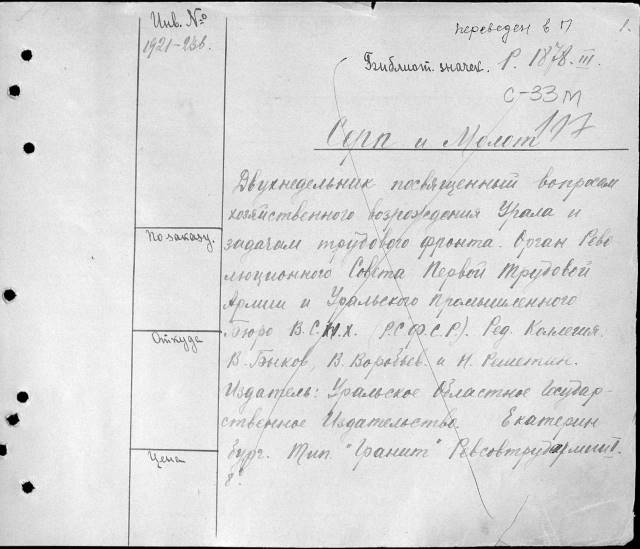 Инв. №
1921-23в.
переведен в П
1.
Библиот. значек. P. 1878.III.
С-33м
117
Серп и Молот
Двухнедельник посвященный вопросам
хозяйственного возрождения Урала и
задачам трудового фронта. Орган Рево
люционного Совета Первой Трудовой
Армии и Уральского Промышленного
Бюро В.С.Н.Х. Р.С.Ф.С.Р.). Ред. Коллегия:
В. Быков, В. Воробьев. и Н. Решетин.
Издатель: Уральское Областное Государ-
ственное Издательство Екатерин
бург. Тип. "Гранит" Ревсовтрудармии I.
8°.
По заказу.
Откуда
Цена